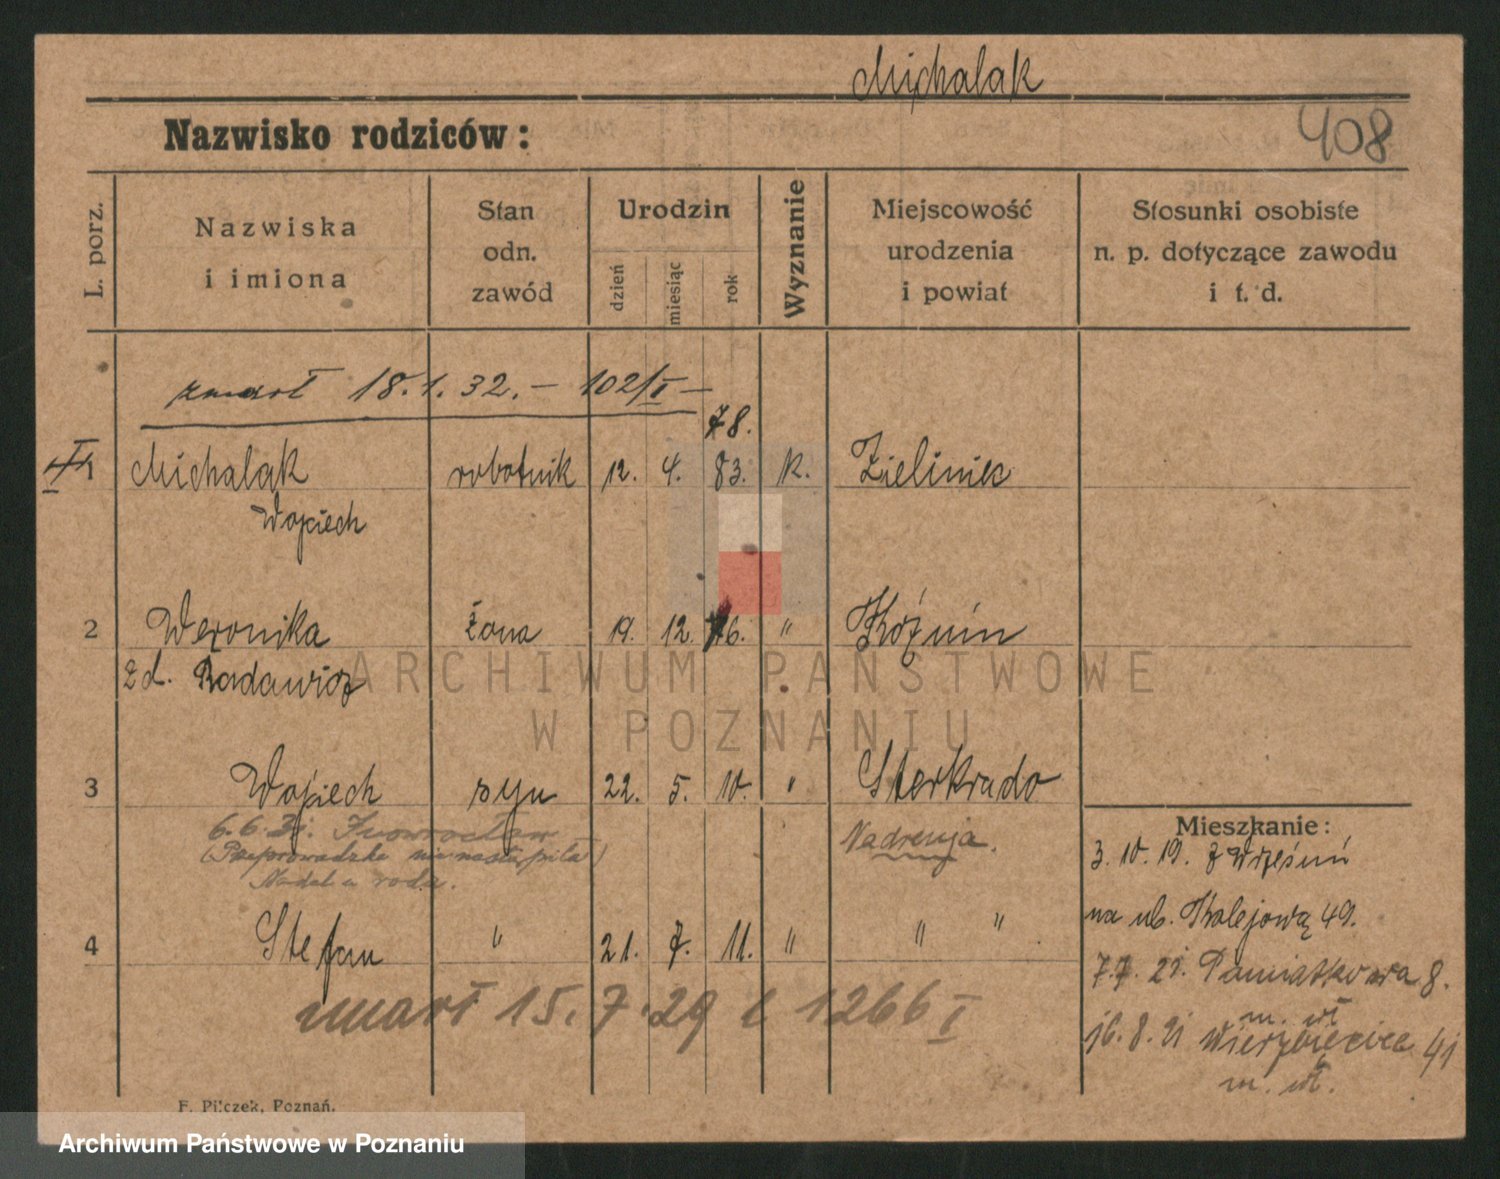 Michalak
408
Nazwisko rodziców:
L. porz.
Nazwiska
i imiona
Stan
odn.
zawód
Urodzin
dzień
miesiąc
rok
Wyznanie
Miejscowość
urodzenia
i powiat
Stosunki osobiste
n. p. dotyczące zawodu
i t. d.
zmarł 18.1.32. — 102/I —
78.
1 Michalak robotnik 12. 4. 83. K. Zieliniec
Wojciech
2 Weronika żona 19. 12. 76. " Kóźmin
zd. Radawicz
3 Wojciech syn 22. 5. 10. " Sterkrado
6.6.3 Inowrocław Nadrenja.
Mieszkanie:
3. 10. 19. z Wrześni
na ul. Kolejową 49.
4 Stefan " 21. 7. 11. " " "
7.7. 21. Pamiątkowa 8.
m. wł
zmarł 15.7.29 1266 I
16.8.21 Wierzbięcice 41
m. wł.
F. Pilczek, Poznań.
ARCHIWUM PAŃSTWOWE
W POZNANIU
Archiwum Państwowe w Poznaniu